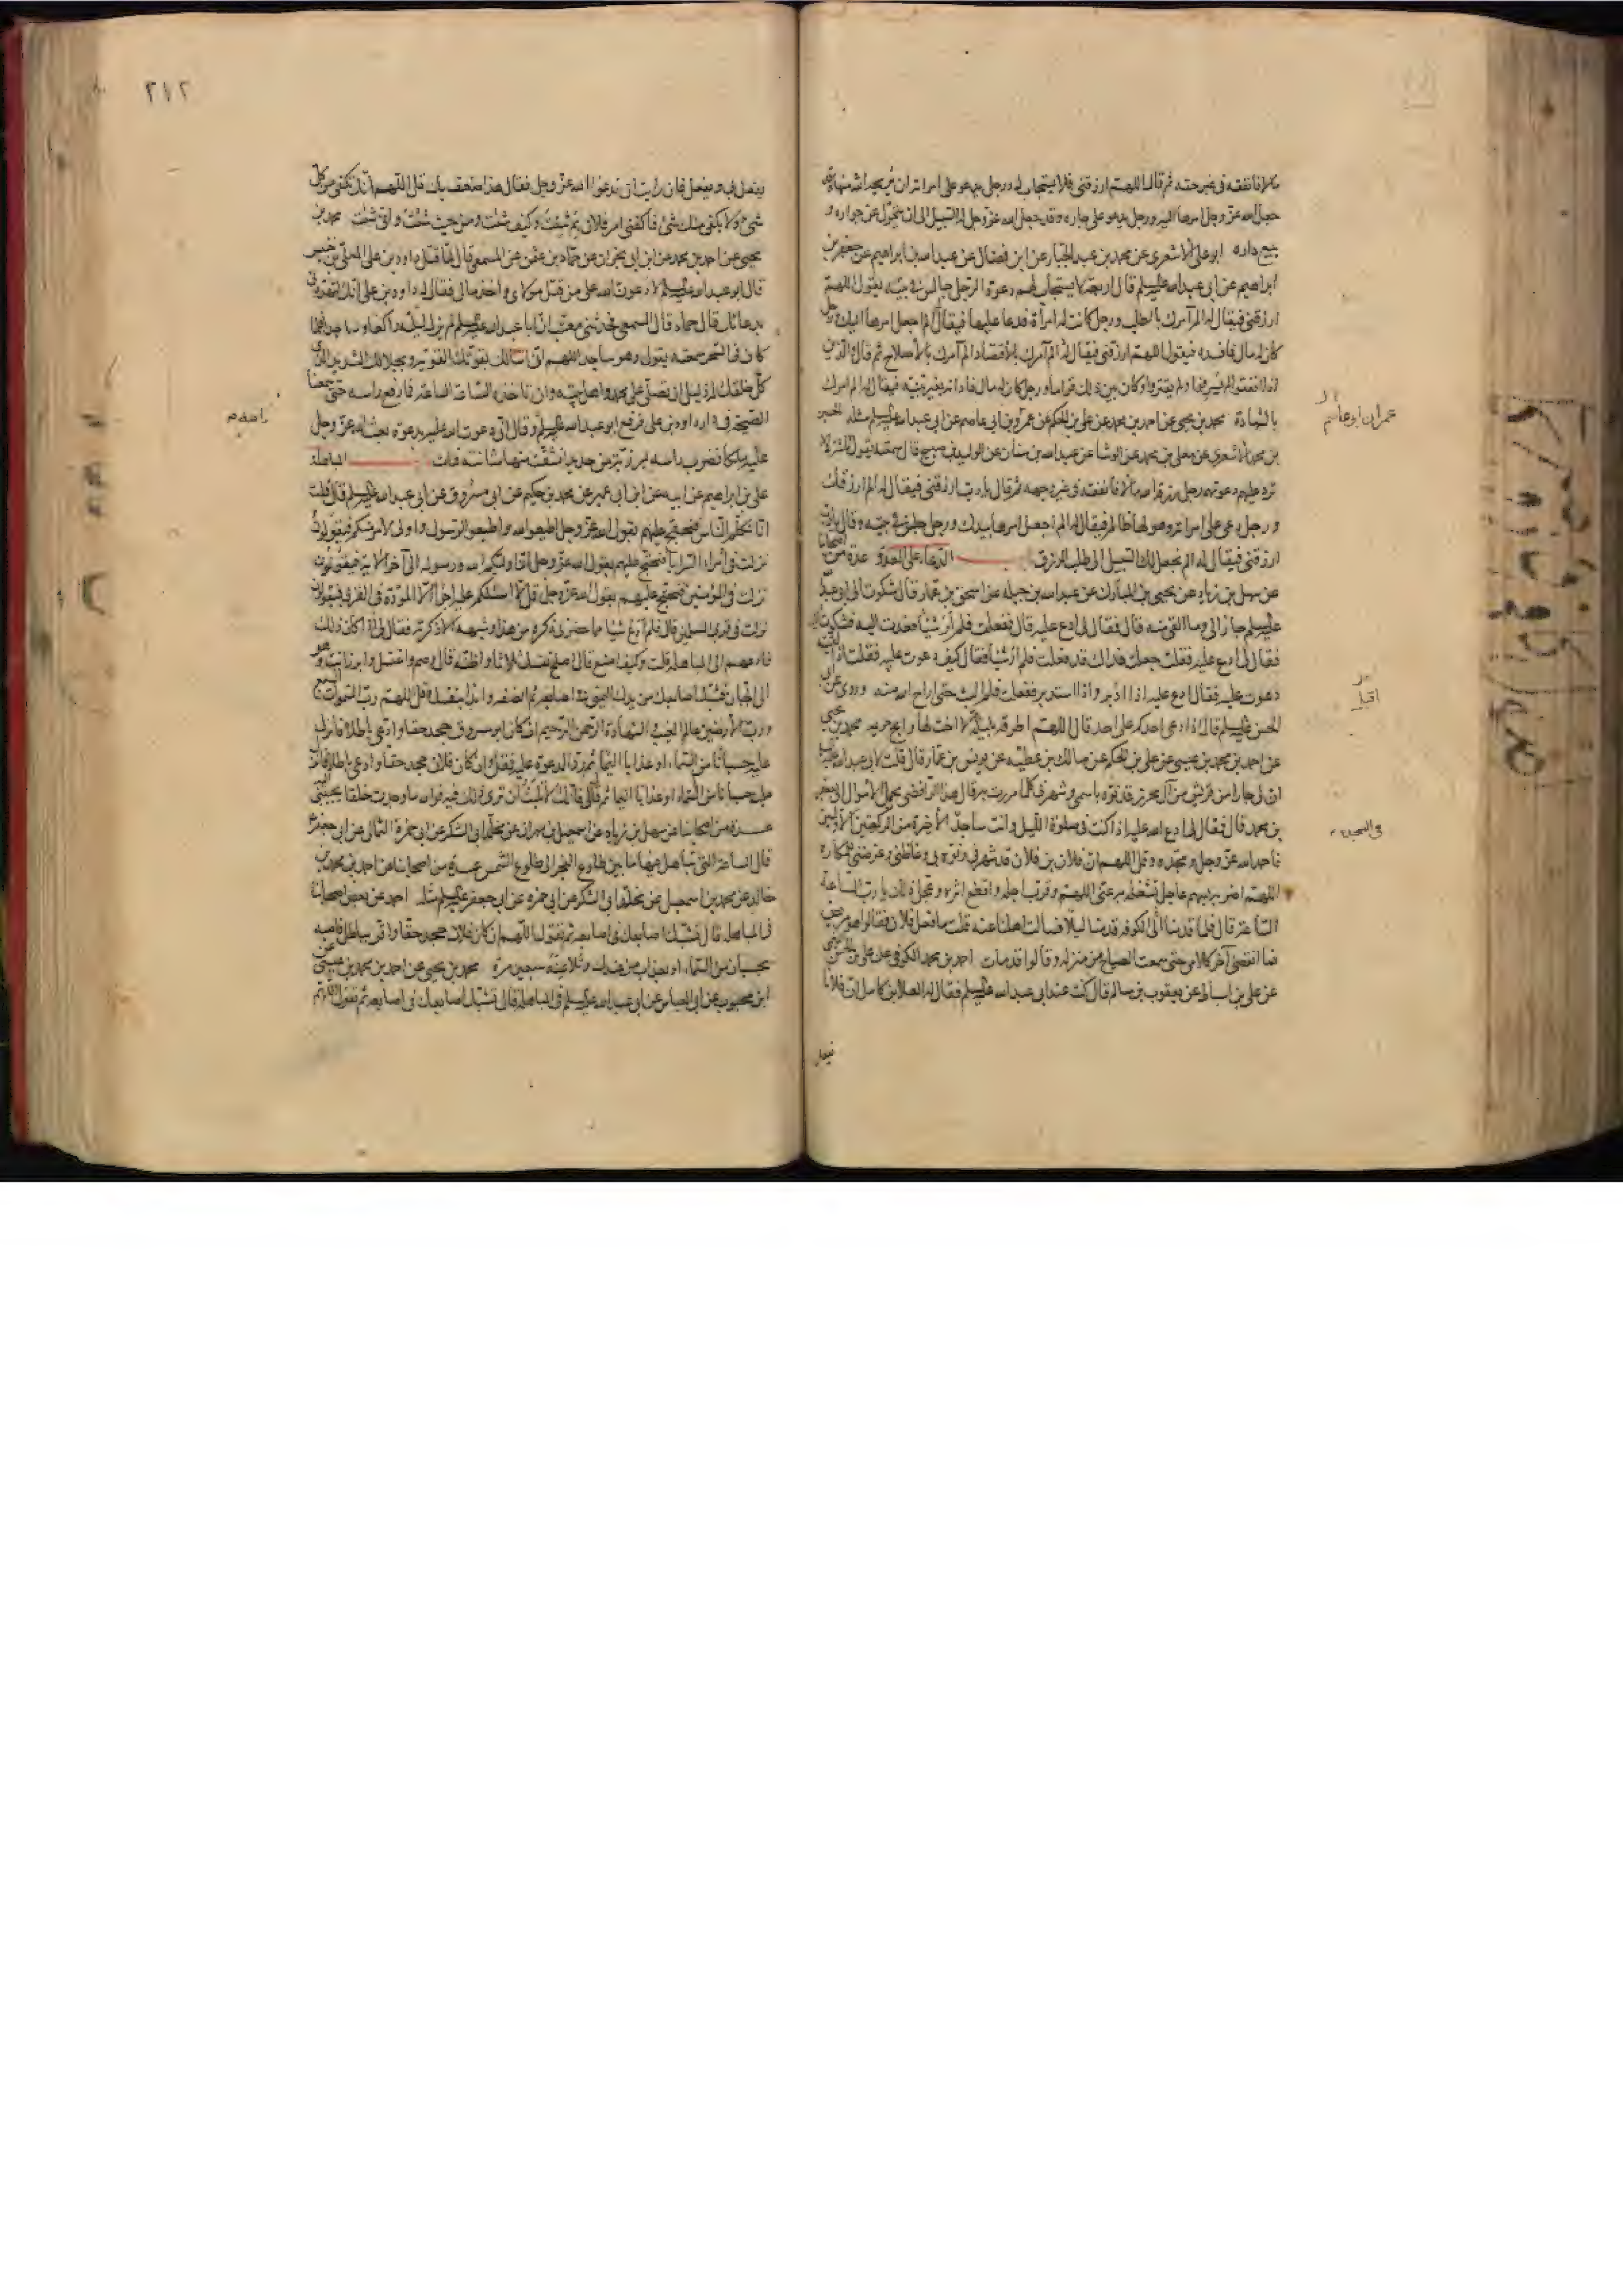 مالا فانفقه فى غير حقه ثم قال اللهم ارزقنى فلا يستجاب له ورجل يدعو على امراته ان يريحه الله منها وقد
جعل الله عز وجل امرها اليه ورجل يدعو على جاره وقد جعل الله عز وجل له السبيل الى ان يتحول عن جواره و
يبيع داره ابو على الاشعرى عن محمد بن عبد الجبار عن ابن فضال عن عبد الله بن ابراهيم عن جعفر بن
ابراهيم عن ابى عبد الله عليه السلم قال اربعة لا يستجاب لهم دعوة الرجل جالس فى بيته يقول اللهم
ارزقنى فيقال له الم آمرك بالطلب ورجل كانت له امرأة فدعا عليها فيقال له الم اجعل امرها اليك ورجل
كان له مال فافسده فيقول اللهم ارزقنى فيقال له الم آمرك بالاقتصاد الم آمرك بالاصلاح ثم قال والذين
اذا انفقوا لم يسرفوا ولم يقتروا وكان بين ذلك قواما ورجل كان له مال فادانه بغير بينة فيقال له الم امرك
بالشهادة محمد بن يحيى عن احمد بن محمد عن على بن الحكم عن عمرو بن ابى عاصم عن ابى عبد الله عليه السلم مثله الحسين
بن محمد الاشعرى عن معلى بن محمد عن الوشا عن عبد الله بن سنان عن الوليد بن صبيح قال سمعته يقول ثلاثة
ترد عليهم دعوتهم رجل رزقه الله مالا فانفقه فى غير وجهه ثم قال يا رب ارزقنى فيقال له الم ارزقك
ورجل دعى على امراته وهو لها ظالم فيقال له الم اجعل امرها بيدك ورجل جلس فى بيته وقال يا رب
ارزقنى فيقال له الم نجعل لك السبيل الى طلب الرزق الدعاء على العدو عدة من اصحابنا
عن سهل بن زياد عن يحيى بن المبارك عن عبد الله بن جبله عن اسحق بن عمار قال شكوت الى ابى عبد الله
عليه السلم جارا لى وما القى منه قال فقال لى ادع عليه قال ففعلت فلم ار شيئا فعدت اليه فشكوت اليه
فقال لى ادع عليه فقلت جعلت فداك قد فعلت فلم ار شيئا فقال كيف دعوت عليه فقلت اذا لقيته
دعوت عليه فقال ادع عليه اذا ادبر واذا استدبر ففعلت فلم البث حتى اراح الله منه وروى عن ابى
الحسن عليه السلم قال اذا دعى احدكم على احد قال اللهم اطرقه ببلية لا اخت لها وابح حريمه محمد بن يحيى
عن احمد بن محمد بن عيسى عن على بن الحكم عن مالك بن عطيه عن يونس بن عمار قال قلت لابى عبد الله عليه السلم
ان لى جارا من قريش من آل محرز قد نوه باسمى وشهرنى كلما مررت به قال هذا الرافضى يحمل الاموال الى جعفر
بن محمد قال فقال لى ادع الله عليه اذا كنت فى صلوة الليل وانت ساجد الاخيرة من الركعتين الاوليين
فاحمد الله عز وجل ومجده وقل اللهم ان فلان بن فلان قد شهرنى ونوه بى وغاظنى وعرضنى للمكاره
اللهم اضربه بسهم عاجل تشغله به عنى اللهم وقرب اجله واقطع اثره وعجل ذلك يا رب الساعة
الساعة قال فلما قدمنا الى الكوفه قدمنا ليلا فسالت اهلنا عنه قلت ما فعل فلان فقالوا هو مريض
فما انقضى آخر كلامى حتى سمعت الصياح من منزله وقالوا قد مات احمد بن محمد الكوفى عن على بن الحسن
عن على بن اسباط عن يعقوب بن سالم قال كنت عند ابى عبد الله عليه السلم فقال له العلا بن كامل ان فلانا
عمران ابو عاصم
اقبل
فى السجدة
٢١٢
يفعل بى ويفعل فان رايت ان تدعو الله عز وجل فقال هذا ضعف بك قل اللهم انك تكفى من كل
شئ ولا يكفى منك شئ فاكفنى امر فلان بم شئت وكيف شئت ومن حيث شئت وانى شئت محمد بن
يحيى عن احمد بن محمد عن ابن ابى نجران عن حماد بن عثمن عن المسمعى قال لما قتل داود بن على المعلى بن خنيس
قال ابو عبد الله عليه السلم لادعون الله على من قتل مولاى واخذ مالى فقال له داود بن على انك لتهددنى
بدعائك قال حماد قال المسمعى فحدثنى معتب ان ابا عبد الله عليه السلم لم يزل ليلته راكعا وساجدا فلما
كان فى السحر سمعته يقول وهو ساجد اللهم انى اسالك بقوتك القوية وبجلالك الشديد الذى
كل خلقك له ذليل ان تصلى على محمد واهل بيته وان تاخذه الساعة الساعة فما رفع راسه حتى سمعنا
الصيحة فى دار داود بن على فرفع ابو عبد الله عليه السلم وقال انى دعوت الله عليه بدعوة بعث الله عز وجل
عليه ملكا فضرب راسه بمرزبة من حديد انشقت منها مثانته فمات المباهلة
على بن ابراهيم عن ابيه عن ابن ابى عمير عن محمد بن حكيم عن ابى مسروق عن ابى عبد الله عليه السلم قال قلت
انا نكلم الناس فنحتج عليهم بقول الله عز وجل اطيعوا الله واطيعوا الرسول واولى الامر منكم فيقولون
نزلت فى امراء السرايا فنحتج عليهم بقول الله عز وجل انما وليكم الله ورسوله الى آخر الاية فيقولون
نزلت فى المؤمنين فنحتج عليهم بقول الله عز وجل قل لا اسئلكم عليه اجرا الا المودة فى القربى فيقولون
نزلت فى قربى المسلمين قال فلم ادع شيئا مما حضرنى ذكره من هذا وشبهه الا ذكرته فقال لى اذا كان ذلك
فادعهم الى المباهلة قلت وكيف اصنع قال اصلح نفسك ثلاثا واظنه قال وصم واغتسل وابرز انت وهو
الى الجبان فشبك اصابعك من يدك اليمنى فى اصابعه ثم انصفه وابدا بنفسك وقل اللهم رب السموات السبع
ورب الارضين عالم الغيب والشهادة الرحمن الرحيم ان كان ابو مسروق جحد حقا وادعى باطلا فانزل
عليه حسبانا من السماء او عذابا اليما ثم رد الدعوة عليه فقل وان كان فلان جحد حقا وادعى باطلا فانزل
عليه حسبانا من السماء او عذابا اليما ثم قال لى فانك لا تلبث ان ترى ذلك فيه فوالله ما وجدت خلقا يجيبنى اليه
عدة من اصحابنا عن سهل بن زياد عن اسمعيل بن مهران عن مخلد ابى الشكر عن ابى حمزة الثمالى عن ابى جعفر ع
قال الساعة التى تباهل فيها ما بين طلوع الفجر الى طلوع الشمس عدة من اصحابنا عن احمد بن محمد بن
خالد عن محمد بن اسمعيل عن مخلد ابى الشكر عن ابى حمزه عن ابى جعفر عليه السلم مثله احمد عن بعض اصحابنا
فى المباهله قال تشبك اصابعك فى اصابعه ثم تقول اللهم ان كان فلان جحد حقا واقر بباطل فاصبه
بحسبان من السماء او بعذاب من عندك وتلاعنه سبعين مرة محمد بن يحيى عن احمد بن محمد بن عيسى عن
ابن محبوب عن ابى العباس عن ابى عبد الله عليه السلم فى المباهلة قال تشبك اصابعك فى اصابعه ثم تقول اللهم
راسه م